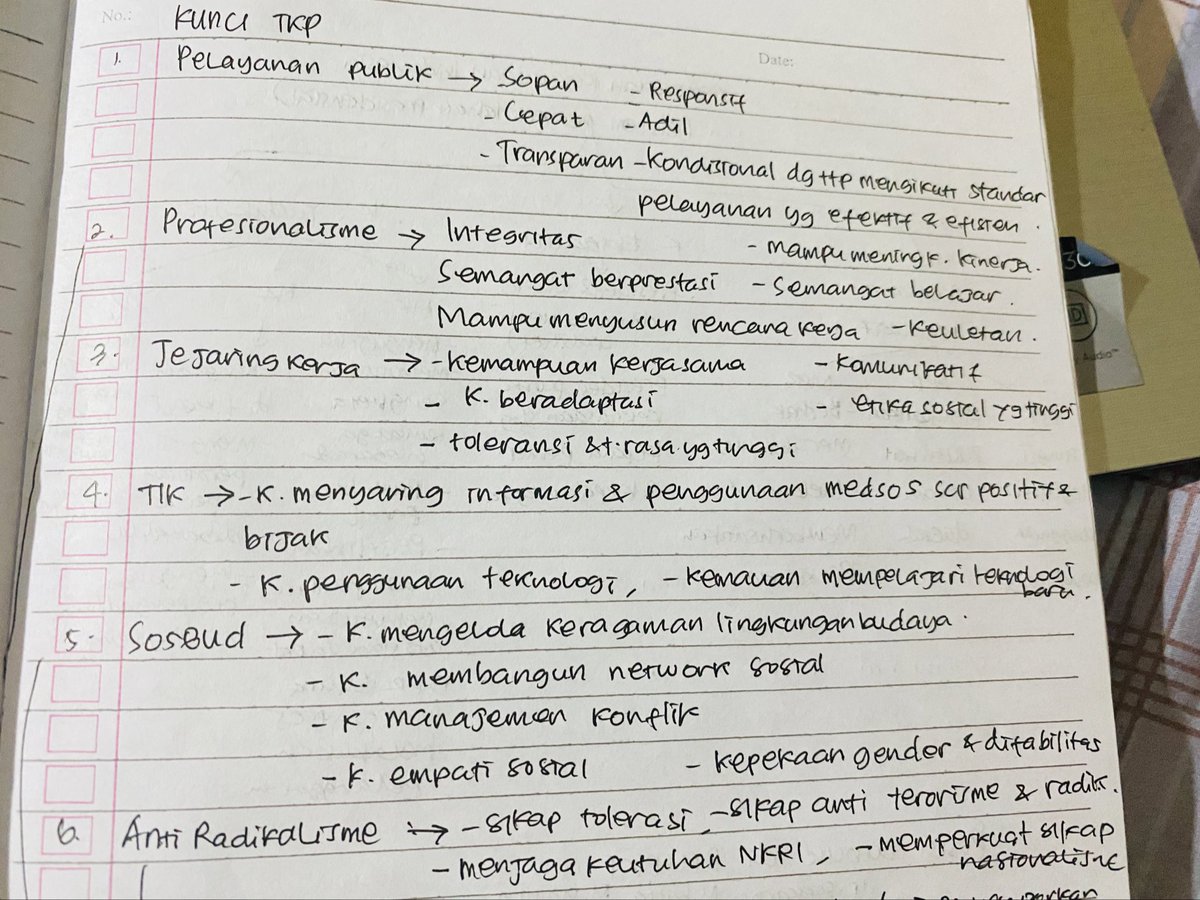 No.:
KUNCI TKP
Date:
1. Pelayanan publik → Sopan - Responsif
- Cepat - Adil
- Transparan - Kondisional dg ttp mengikuti standar
pelayanan yg efektif & efisien.
2. Profesionalisme → Integritas - mampu meningk. kinerja.
Semangat berprestasi - Semangat belajar.
Mampu menyusun rencana kerja - Keuletan.
3. Jejaring kerja → - Kemampuan kerjasama - Komunikatif
- K. beradaptasi - etika sosial yg tinggi
- toleransi & t. rasa yg tinggi
4. TIK → - K. menyaring informasi & penggunaan medsos scr positif &
bijak
- K. penggunaan teknologi, - kemauan mempelajari teknologi
baru.
5. SosBud → - K. mengelola keragaman lingkungan budaya.
- K. membangun network sosial
- K. manajemen konflik
- K. empati sosial - kepekaan gender & difabilitas
6. Anti Radikalisme → - sikap tolerasi, - sikap anti terorisme & radik.
- menjaga keutuhan NKRI, - memperkuat sikap
nasionalisme